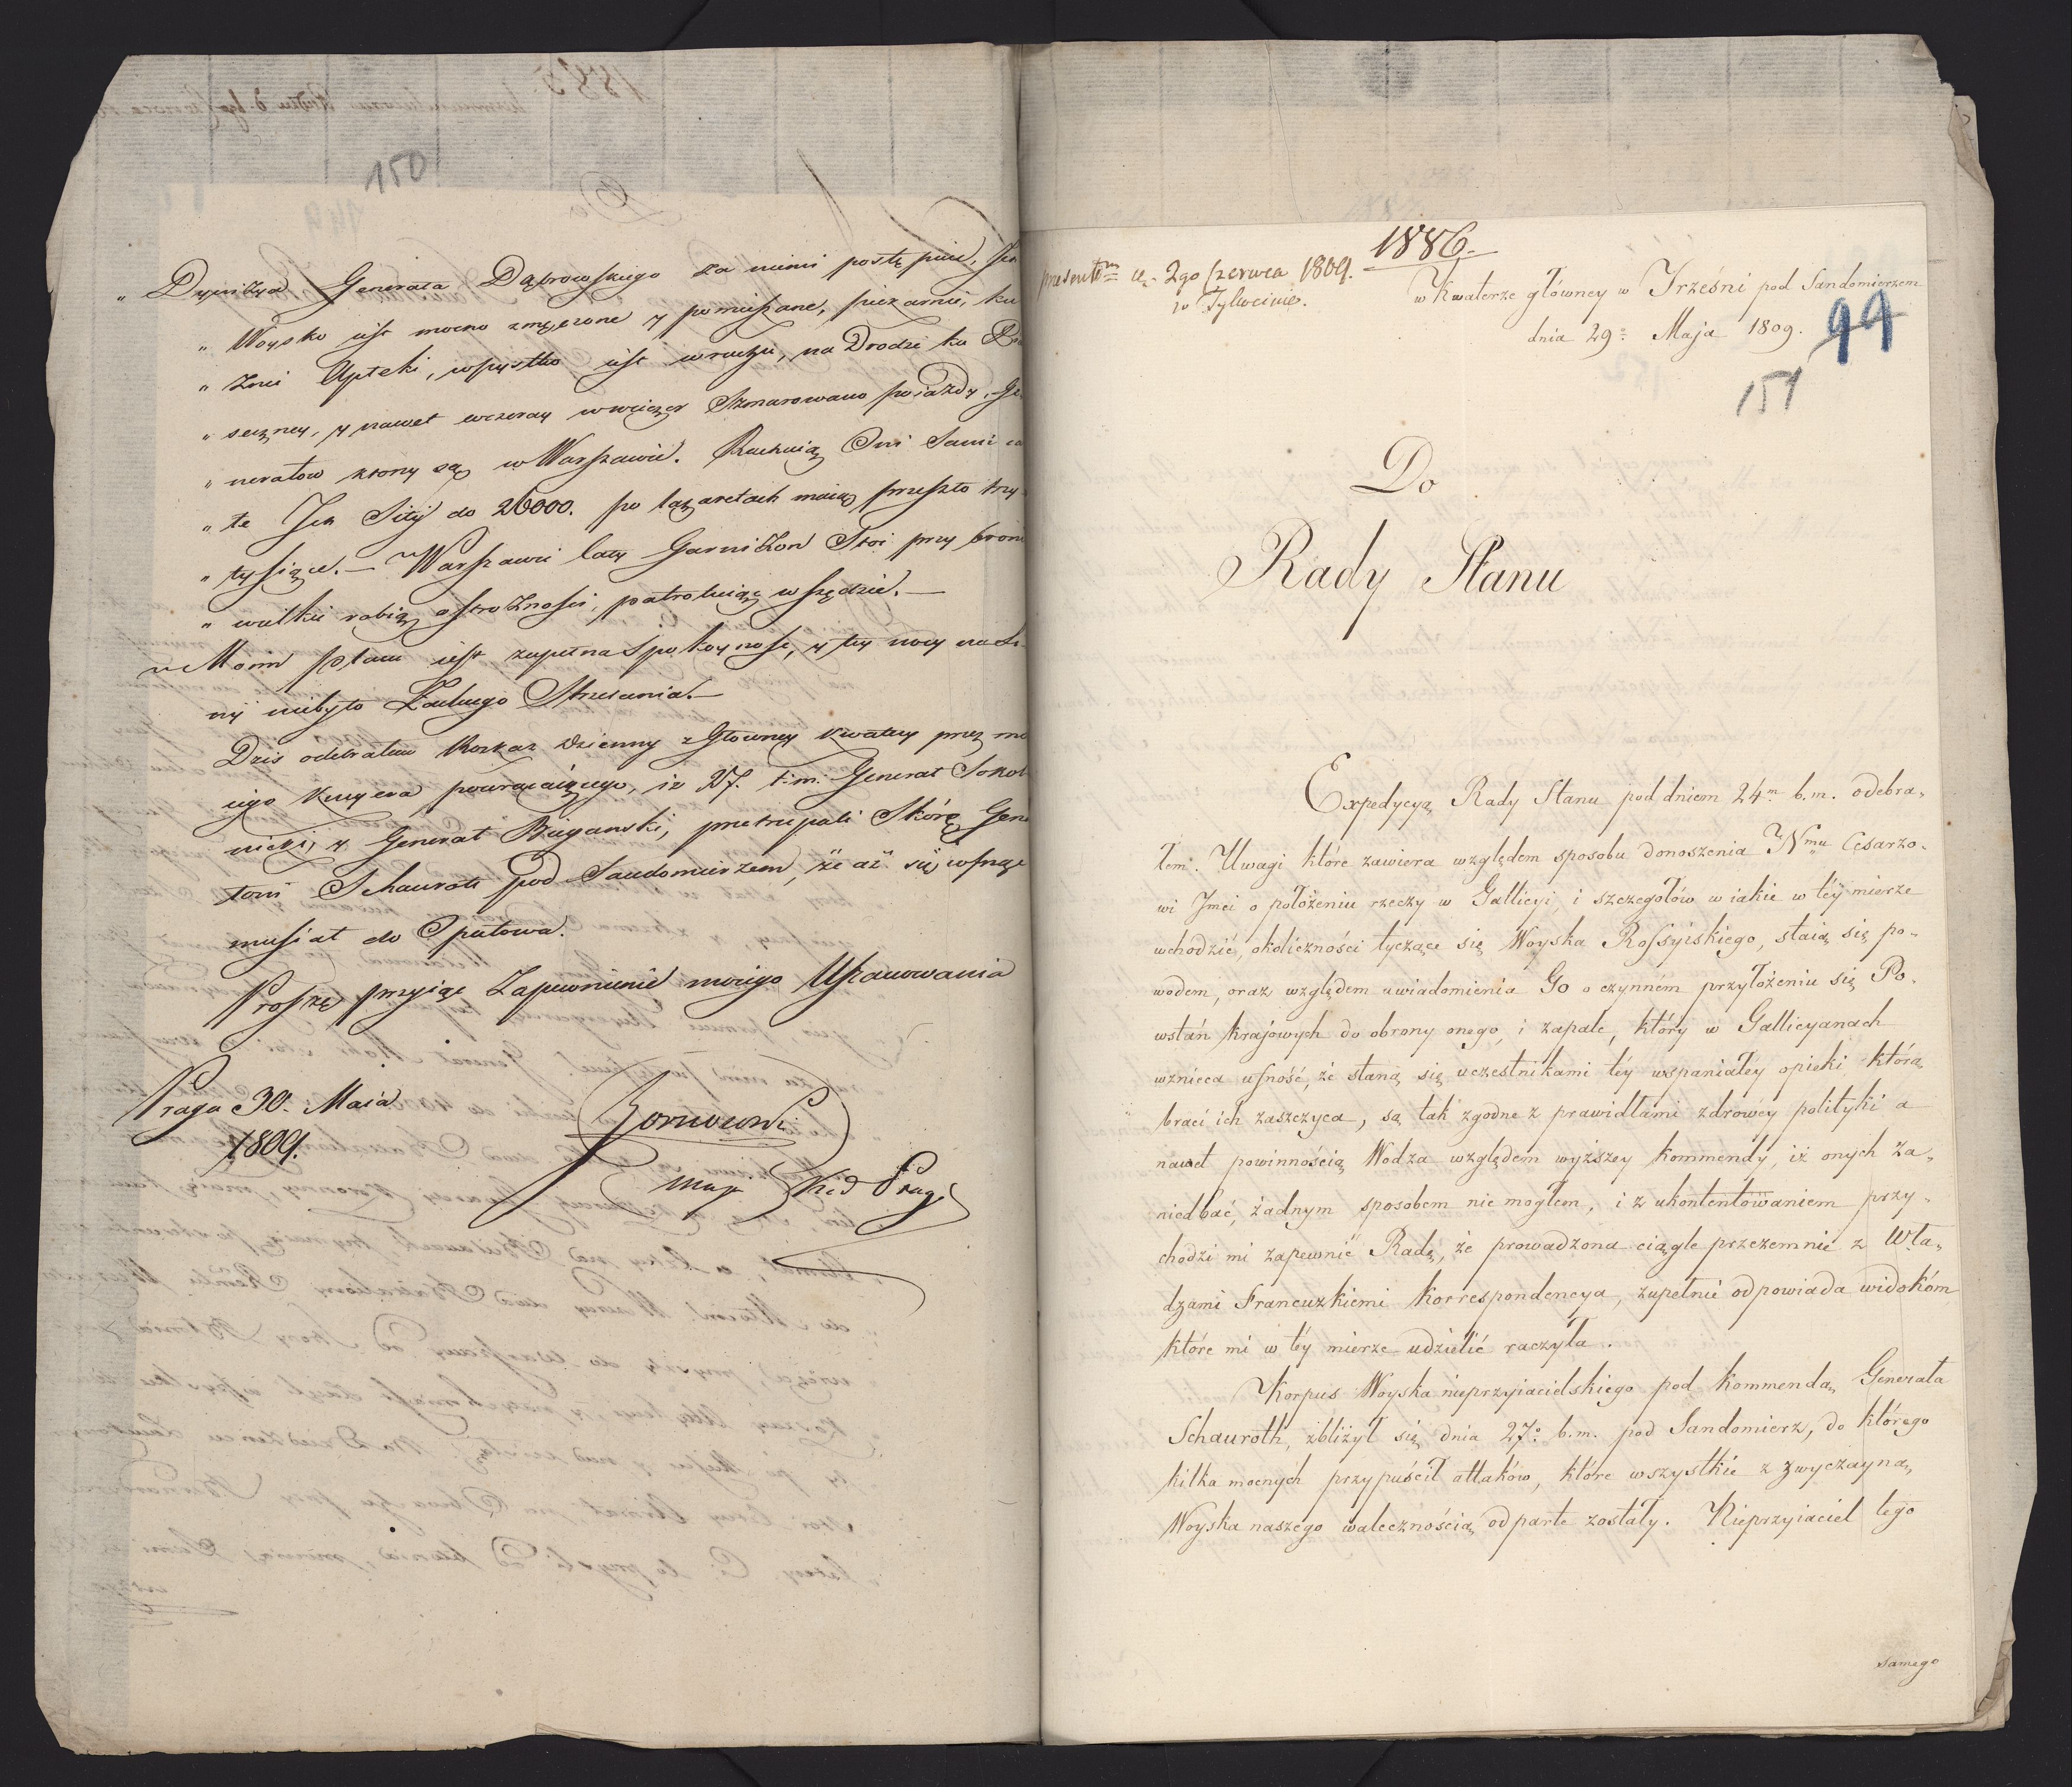 150
" Dywizya Generała Dąbrowskiego za niemi postępuie,
" Woysko iest mocno zmęczone y pomieszane, piekarnie,
" źnie Apteki, wszystko iest w ruchu, na Drodze ku
" seczney, y nawet wczoray wwieczor Szmarowano poiazdy, Ge
" nerałow ktory są w Warszawie. Rachuią Oni Sami
" te Jch Siły do 26000. po lazaretach maią przeszło trzy
" tysiące. — Warszawie cały Garnizon Stoi przy broni
" wielkie robią ostrożnosci, patroluią wszędzie. —
W Moim stanie iest zupełna Spokoynosc, y tey nocy
niebyło Żadnego Strzelania. —
Dzis odebrałem Rozkaz dzienny z Głowney Kwatery przez
iego Kuryera powracaiącego, iz 27. t.m. Generał Sokol
nicki, y Generał Bieganski, przetrzepali Skórę Gene
Schauroth pod Sandomierzem, że aż się
musiał do Opatowa.
Proszę przyiąc Zapewnienie moiego Uszanowania
Praga 30. Maia
1809.
Hornowski
Maj Kd Pragi
1886.
presentm d. 2go Czerwca 1809.
w Tykocinie.
w Kwaterze główney w Trześni pod Sandomierzem
dnia 29. Maja 1809.
99
151
Do
Rady Stanu
Expedycyą Rady Stanu pod dniem 24m b.m. odebra-
łem. Uwagi które zawiera względem sposobu donoszenia Nmu Cesarzo-
wi Jmci o położeniu rzeczy w Gallicyi, i szczegołów w iakie w téy mierze
wchodzić, okoliczności tyczące się Woyska Rossyiskiego, staią się po-
wodem, oraz względem uwiadomienia Go o czynném przyłożeniu się Po-
wstań krajowych do obrony onego, i zapale, który w Gallicyanach
wznieca ufność, że staną się uczestnikami téy wspaniałéy opieki którą
braci ich zaszczyca, są tak zgodne z prawidłami zdrowéy polityki a
nawet powinnością Wodza względem wyższey kommendy, iż onych za-
niedbać, żadnym sposobem nie mogłem, i z ukontentowaniem przy-
chodzi mi zapewnić Radę, że prowadzona ciągle przezemnie z Wła-
dzami Francuzkiemi korrespondencya, zupełnie odpowiada widokóm
które mi w téy mierze udzielić raczyła.
Korpus Woyska nieprzyiacielskiego pod kommendą Generała
Schauroth, zbliżył się dnia 27o b.m. pod Sandomierz, do którego
kilka mocnych przypuścił attaków, które wszystkie z zwyczayną
Woyska naszego walecznością odparte zostały. Nieprzyiaciel tego
samego